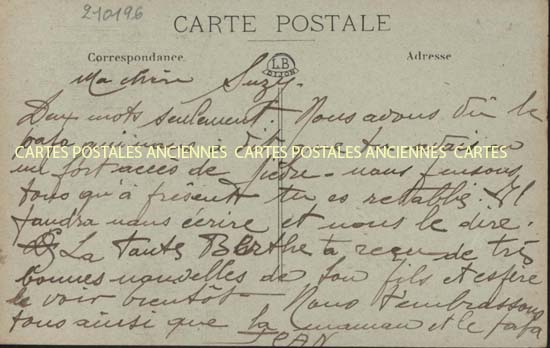 210196
CARTE POSTALE
Correspondance
LB
DIJON
Adresse
Ma chère Suzy.
Deux mots seulement. Nous avons vu le
papa qui nous a dit que tu
CARTES POSTALES ANCIENNES CARTES POSTALES ANCIENNES CARTES
un fort accès de fièvre - nous pensons
tous qu'à présent tu es rétablie. Il
faudra nous écrire et nous le dire.
La Tante Berthe a reçu de très
bonnes nouvelles de son fils et espère
le voir bientôt. Nous t'embrassons
tous ainsi que la maman et le papa
JEAN